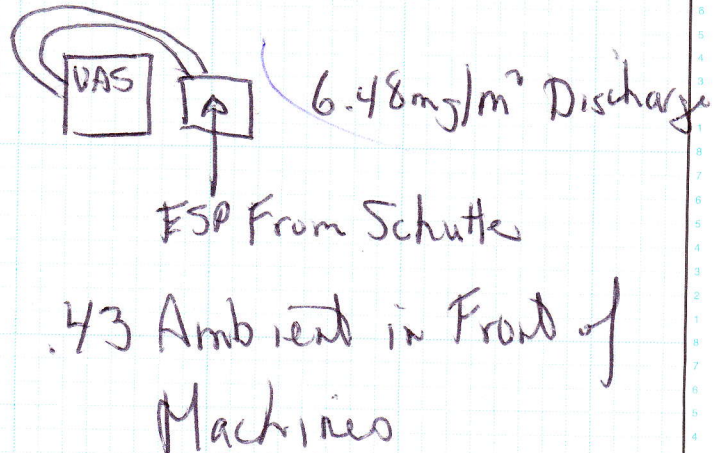 VAS
6.48mg/m³ Discharge
ESP From Schutte
.43 Ambient in Front of
Machines